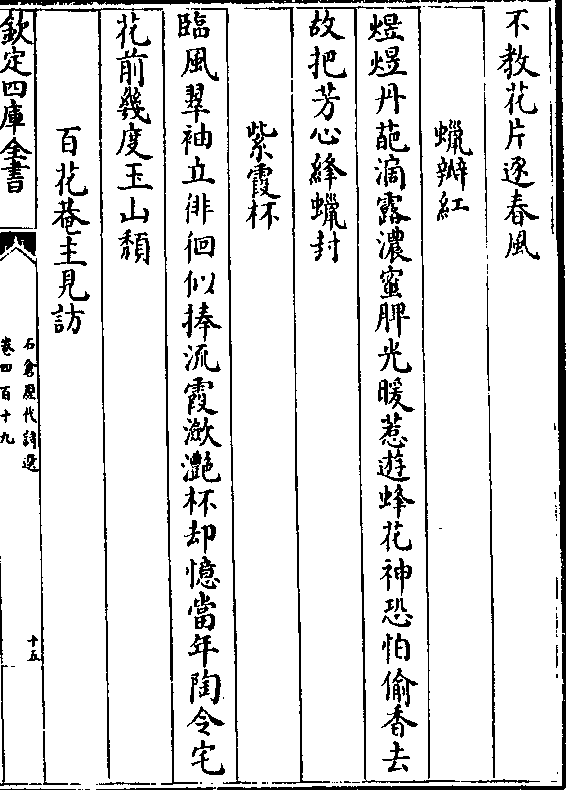 不教花片逐春風
蠟瓣紅
煜煜丹葩滴露濃蜜脾光暖惹遊蜂花神恐怕偷香去
故把芳心絳蠟封
紫霞杯
臨風翠袖立徘徊似捧流霞瀲灔杯却憶當年陶令宅
花前幾度玉山頹
百花菴主見訪
欽定四庫全書
石倉歷代詩選
卷四百十九
十五